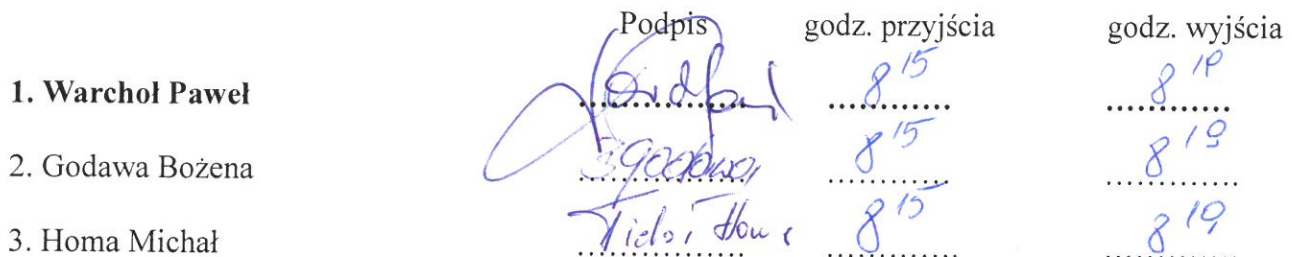 Podpis godz. przyjścia godz. wyjścia
1. Warchoł Paweł ............ 8 15 ............ 8 19 ............
2. Godawa Bożena ............ 8 15 ............ 8 19 ............
3. Homa Michał ............ 8 15 ............ 8 19 ............